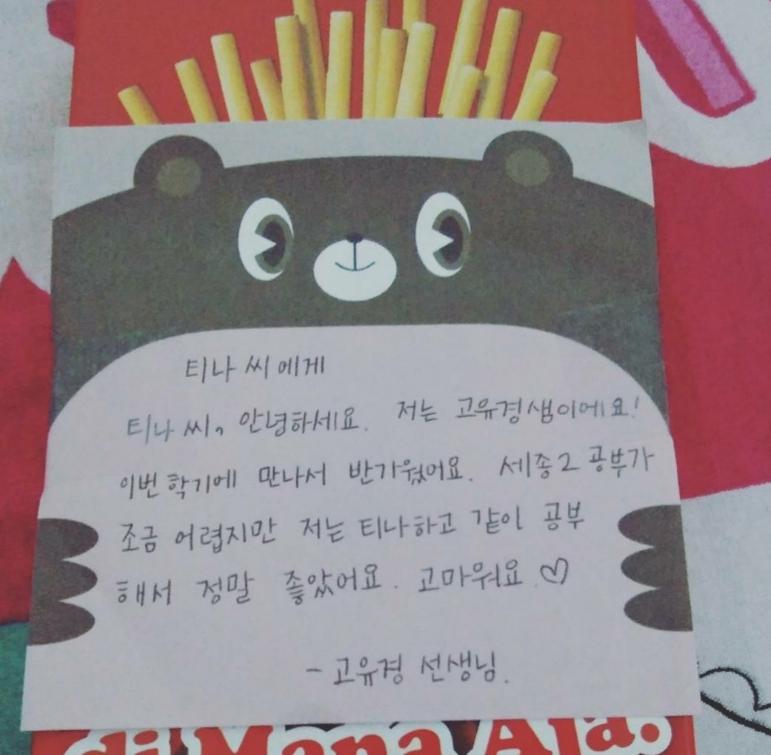 티나 씨에게
티나 씨, 안녕하세요. 저는 고유경샘이에요!
이번 학기에 만나서 반가웠어요. 세종2 공부가
조금 어렵지만 저는 티나하고 같이 공부
해서 정말 좋았어요. 고마워요 ♡
- 고유경 선생님.
di Mana Aja!